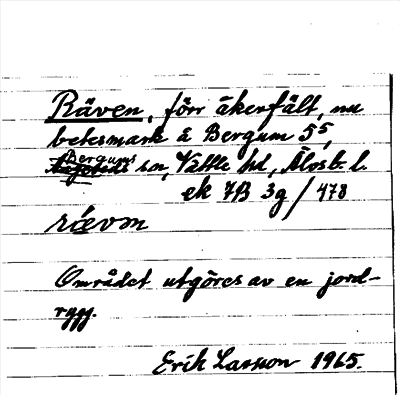 Räven, förr åkerfält, nu
betesmark å Bergum 5⁵,
Bergums sn, Vättle hd, Älvsb. l.
ek 7B 3g/478
rǽvən
Området utgöres av en jord-
rygg.
Erik Larsson 1965.